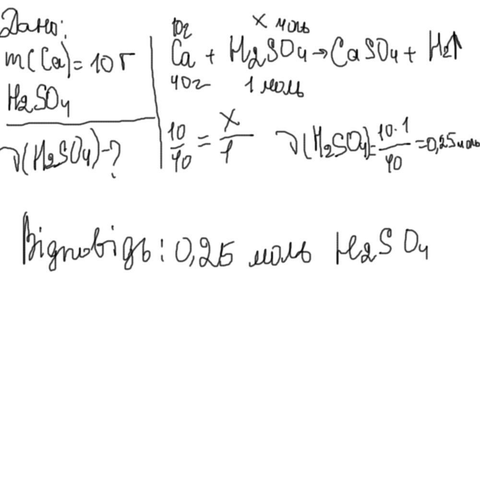 Дано:
m(Ca)=10г
H2SO4
ν(H2SO4)-?
10г x моль
Ca + H2SO4→CaSO4+H2↑
40г 1 моль
10/40 = x/1 ν(H2SO4)=10·1/40=0,25моль
Відповідь: 0,25 моль H2SO4